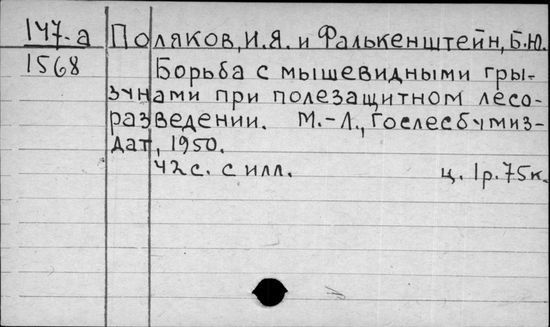 147-а Поляков, И.Я. и Фалькенштейн, Б.Ю.
1568 Борьба с мышевидными гры-
зунами при полезащитном лесо-
разведении. М.-Л., Гослесбумиз-
дат, 1950.
42с. с илл. ц. 1р.75к.